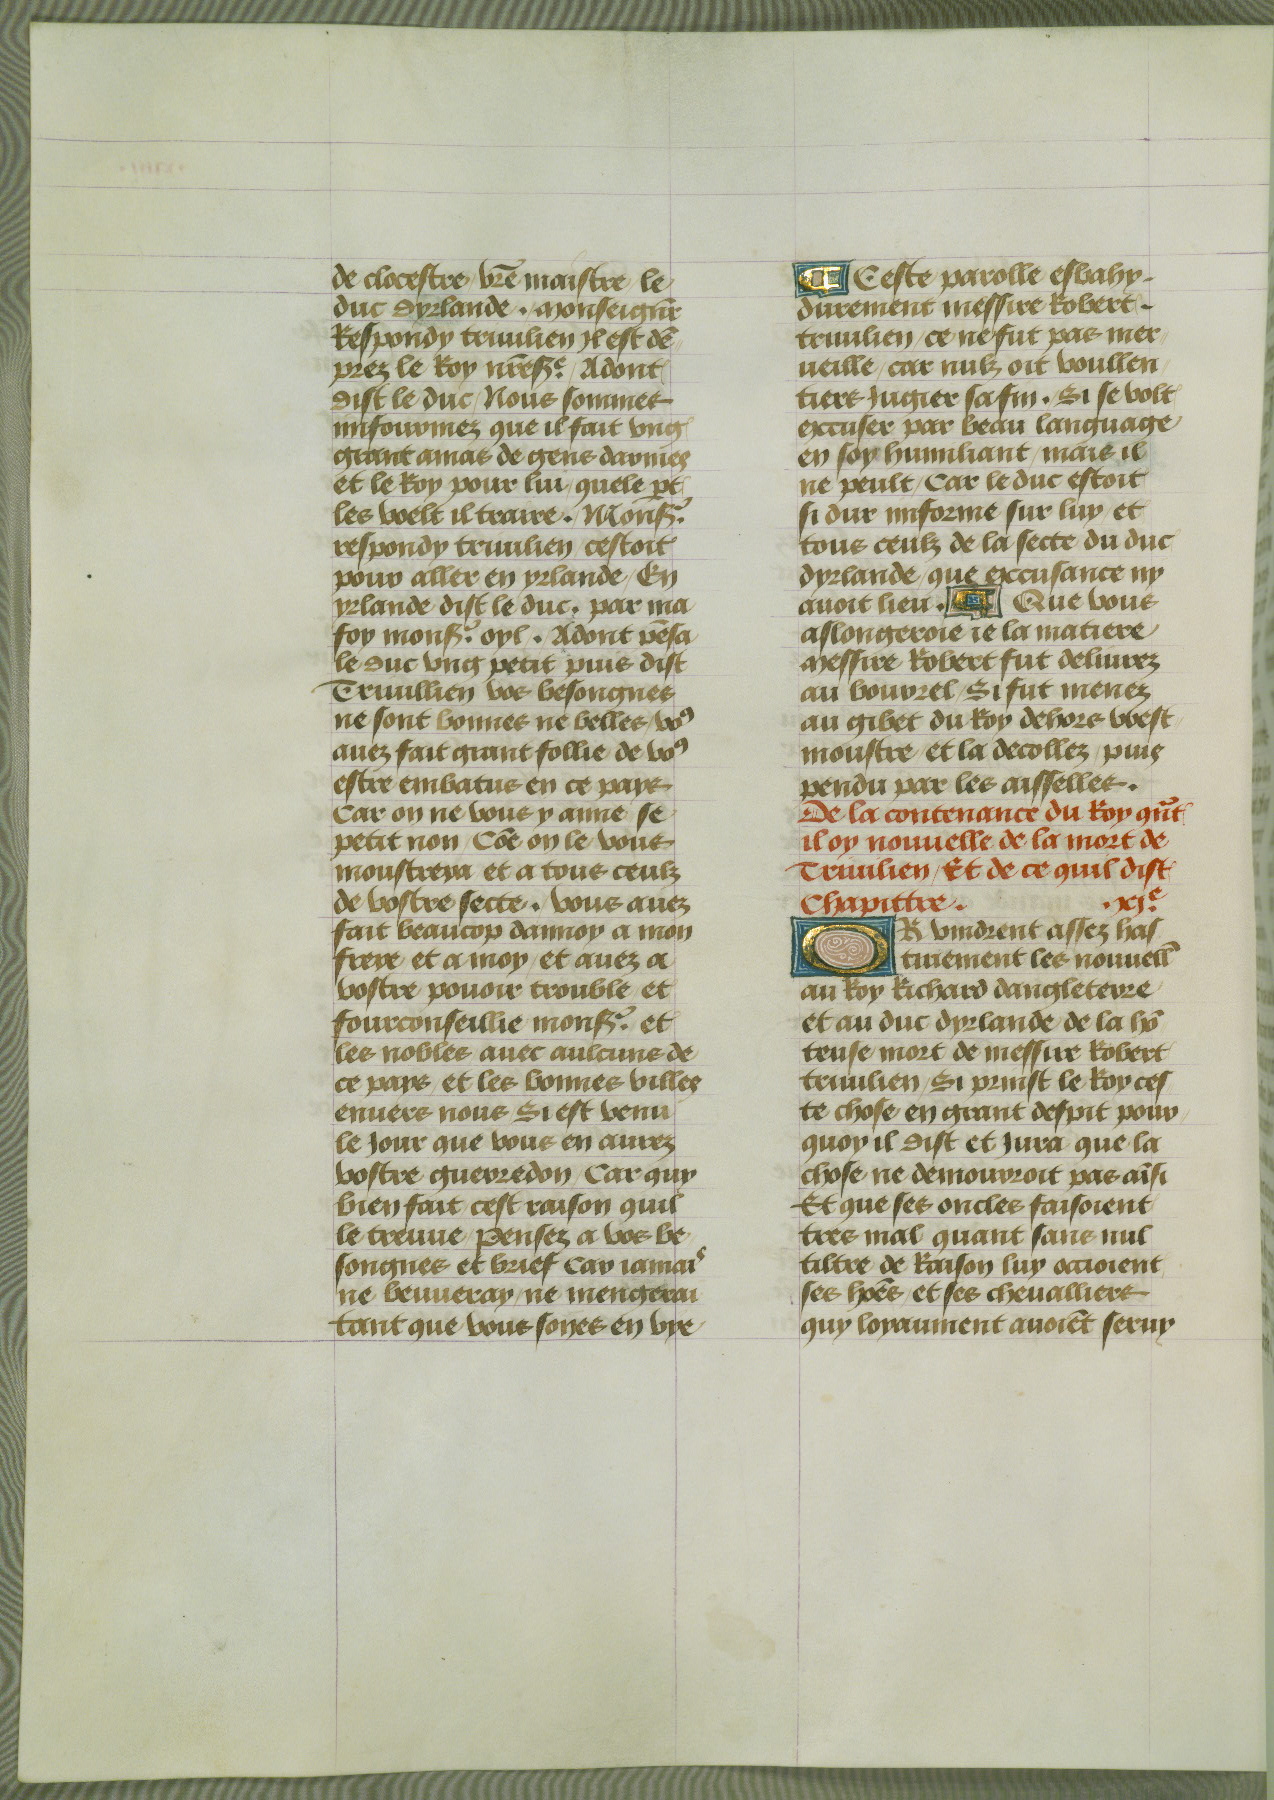 de clocestre / vr̄e maistre le
duc dyrlande . Monseign̄r
Respondy triuilien Jl est de
prez le Roy nr̄e sr̃ᵉ. / Adont
dist le duc / Nous sommes
imfourmez que il fait vng
grant amas de gens darmes
et le Roy pour lui / quele pt̄
les voelt il traire . Monsr̃.
respondy triuilien cestoit
pour aller en yrlande / En
yrlande dist le duc . par ma
foy monsr̃. oyl . Adont pēsa
le duc vng petit puis dist
Triuillien vos besongnes
ne sont bonnes ne belles / voꝰ
auez fait grant follie de voꝰ
estre embatus en ce pays
Car on ne vous y aime se
petit non / Cōe on le vous
moustrera et a tous ceulz
de vostre secte . vous auez
fait beaucop dannoy a mon
frere et a moy / et auez a
vostre pouoir trouble et
fourconseillie monsr̃. et
les nobles auec aulcuns de
ce pays et les bonnes villes
enuers nous Si est venu
le Jour que vous en aurez
vostre guerredon / Car quy
bien fait cest raison quil
le treuue / Pensez a vos be
songnes et brief Car iamaiˢ
ne beuueray / ne mengerai
tant que vous soyes en vye
C Este parolle esbahy
durement messire Robert
triuilien / ce ne fut pas mer
ueille / car nulz oit voullen
tiers Jugier sa fin . Si se volt
excuser par beau language
en soy humiliant / mais il
ne peult / Car le duc estoit
si dur imforme sur luy et
tous ceulz de la secte du duc
dyrlande / que excusance ny
auoit lieu . Que vous
aslongeroie ie la matiere
Messire Robert fut deliurez
au bourrel / Si fut menez
au gibet du Roy dehors vvest
moustre et la decollez / puis
pendu par les aisselles .
De la contenance du Roy qn̄t
il oy nouuelle de la mort de
Triuilien / Et de ce quil dist
Chapittre . . xjᵉ.
O R vindrent assez has
tiuement les nouuell̄
au Roy Richard dangleterre
et au duc dyrlande de la hō
teuse mort de messire Robert
triuilien / Si prinst le Roy ces
te chose en grant despit pour
quoy il dist et Jura que la
chose ne demourroit pas aīsi
Et que ses oncles faisoient
tres mal quant sans nul
tiltre de Raison luy occioient
ses hōēs / et ses cheualliers
quy loyaument auoiēt seruy